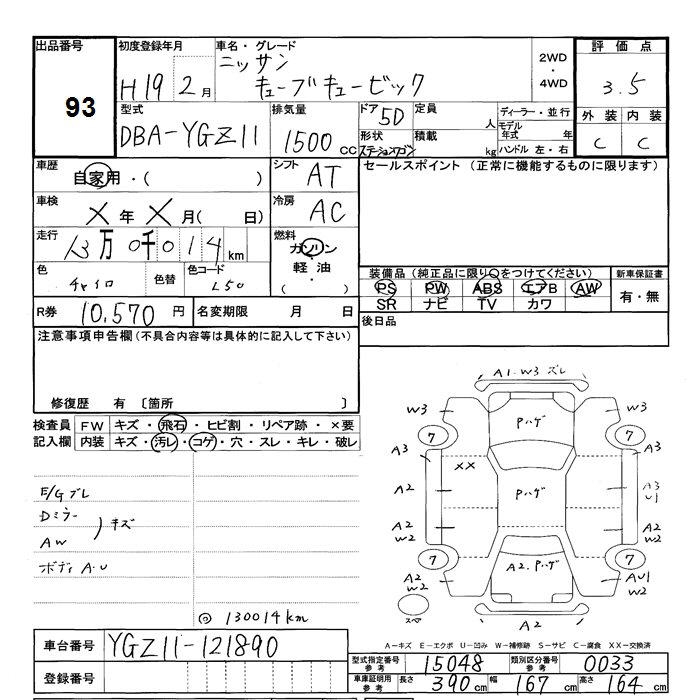 出品番号
93
初度登録年月
H19年2月
車名・グレード
ニッサン
キューブキュービック
2WD
・
4WD
評価点
3.5
外装 内装
C C
型式
DBA-YGZ11
排気量
1500 CC
ドア 5D
形状
ステーションワゴン
定員
人
積載
kg
ディーラー・並行
モデル年式 年
ハンドル 左・右
車歴
自家用・( )
シフト AT
車検
X 年 X 月( 日)
冷房 AC
走行
13万0千014 km
燃料
ガソリン
軽油
( )
色
チャイロ
色替
色コード
L50
R券 10,570 円
名変期限 月 日
セールスポイント (正常に機能するものに限ります)
装備品 (純正品に限り○をつけてください)
PS PW ABS エアB AW
SR ナビ TV カワ
新車保証書
有・無
後日品
注意事項申告欄(不具合内容等は具体的に記入して下さい)
修復歴 有 〔箇所 〕
検査員記入欄
FW キズ・飛石・ヒビ割・リペア跡・×要
内装 キズ・汚レ・コゲ・穴・スレ・キレ・破レ
E/Gブレ
Dミラー
AW
キズ
ボディA・U
◎130014km
A1・W3 ズレ
W3 Pハゲ W3
7 7
A3 XX A3
A2 Pハゲ A3
U1
A2 A2
W2 W2
7 7
A2 A2.Pハゲ AU1
W2 W2
スペア
A2
A-キズ E-エクボ U-凹み W-補修跡 S-サビ C-腐食 XX-交換済
車台番号 YGZ11-121890
登録番号
型式指定番号 参考 15048
類別区分番号 参考 0033
車庫証明用 参考 長さ 390 cm 幅 167 cm 高さ 164 cm